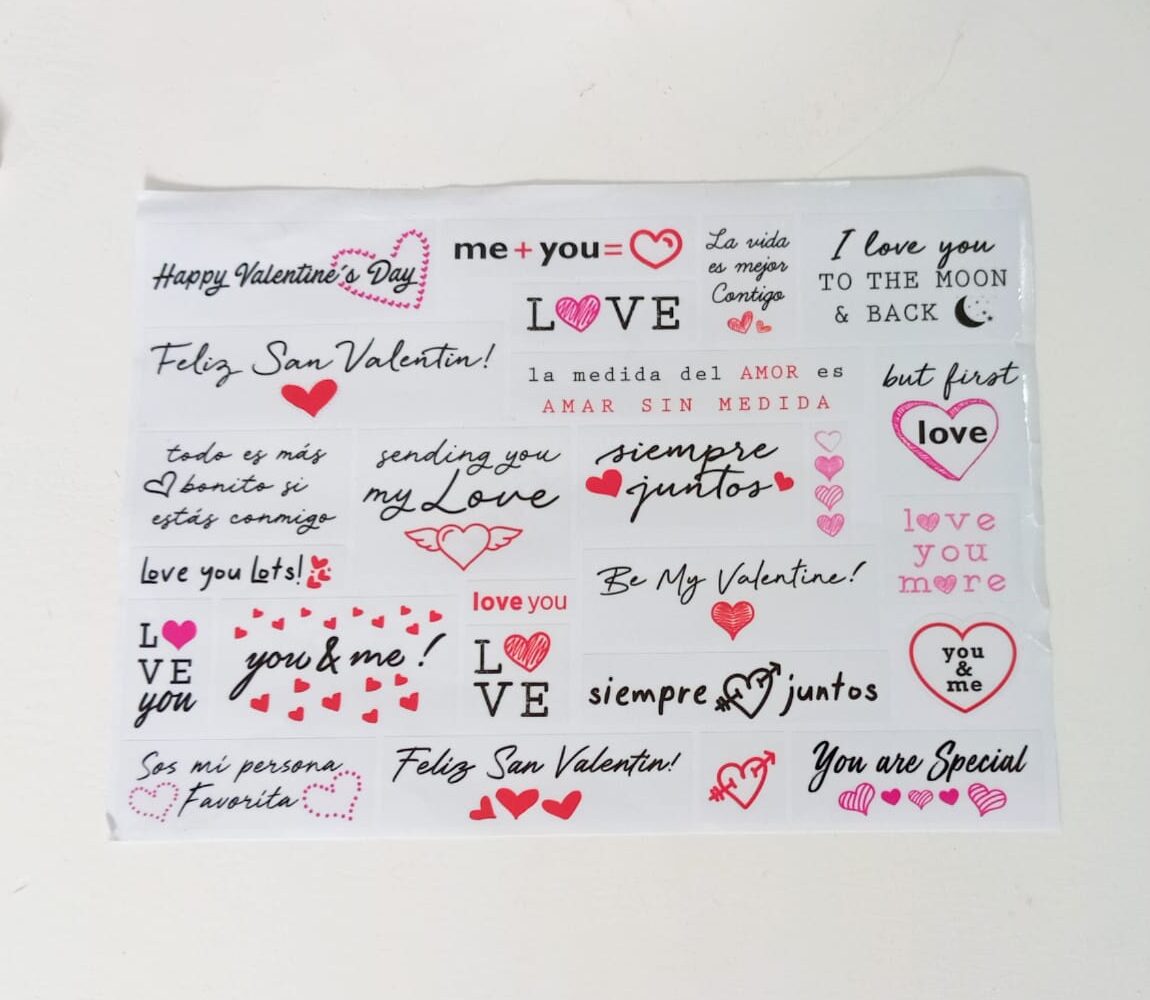 Happy Valentine´s Day
me + you =
La vida
es mejor
Contigo
I love you
TO THE MOON
& BACK
LOVE
Feliz San Valentin!
la medida del AMOR es
AMAR SIN MEDIDA
but first
love
todo es más
bonito si
estás conmigo
sending you
my Love
siempre
juntos
love
you
more
Love you Lots!
Be My Valentine!
love you
LO
VE
you
you & me !
LO
VE
siempre juntos
you
&
me
Sos mi persona
Favorita
Feliz San Valentin!
You are Special